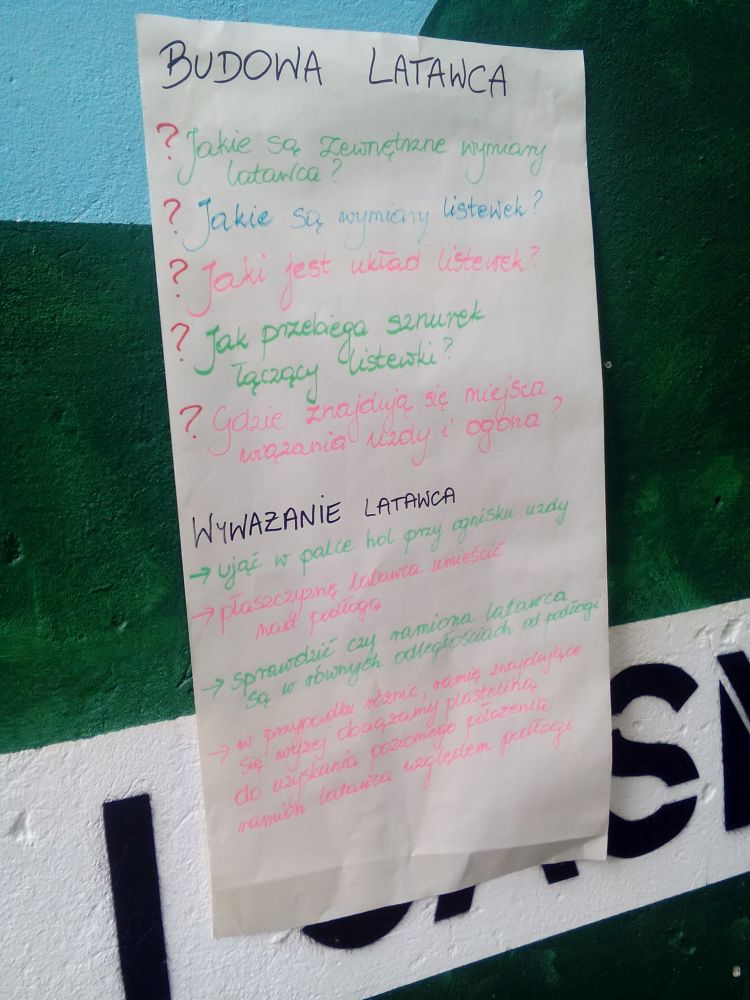 BUDOWA LATAWCA
? Jakie są zewnętrzne wymiary
latawca?
? Jakie są wymiary listewek?
? Jaki jest układ listewek?
? Jak przebiega sznurek
łączący listewki?
? Gdzie znajdują się miejsca
wiązania uzdy i ogona?
WYWAŻANIE LATAWCA
→ ująć w palce hol przy ognisku uzdy
→ płaszczyznę latawca umieścić
nad podłogą
→ sprawdzić czy ramiona latawca
są w równych odległościach od podłogi
→ w przypadku różnic, ramię znajdujące
się wyżej obciążamy plasteliną
do uzyskania poziomego położenia
ramion latawca względem podłogi